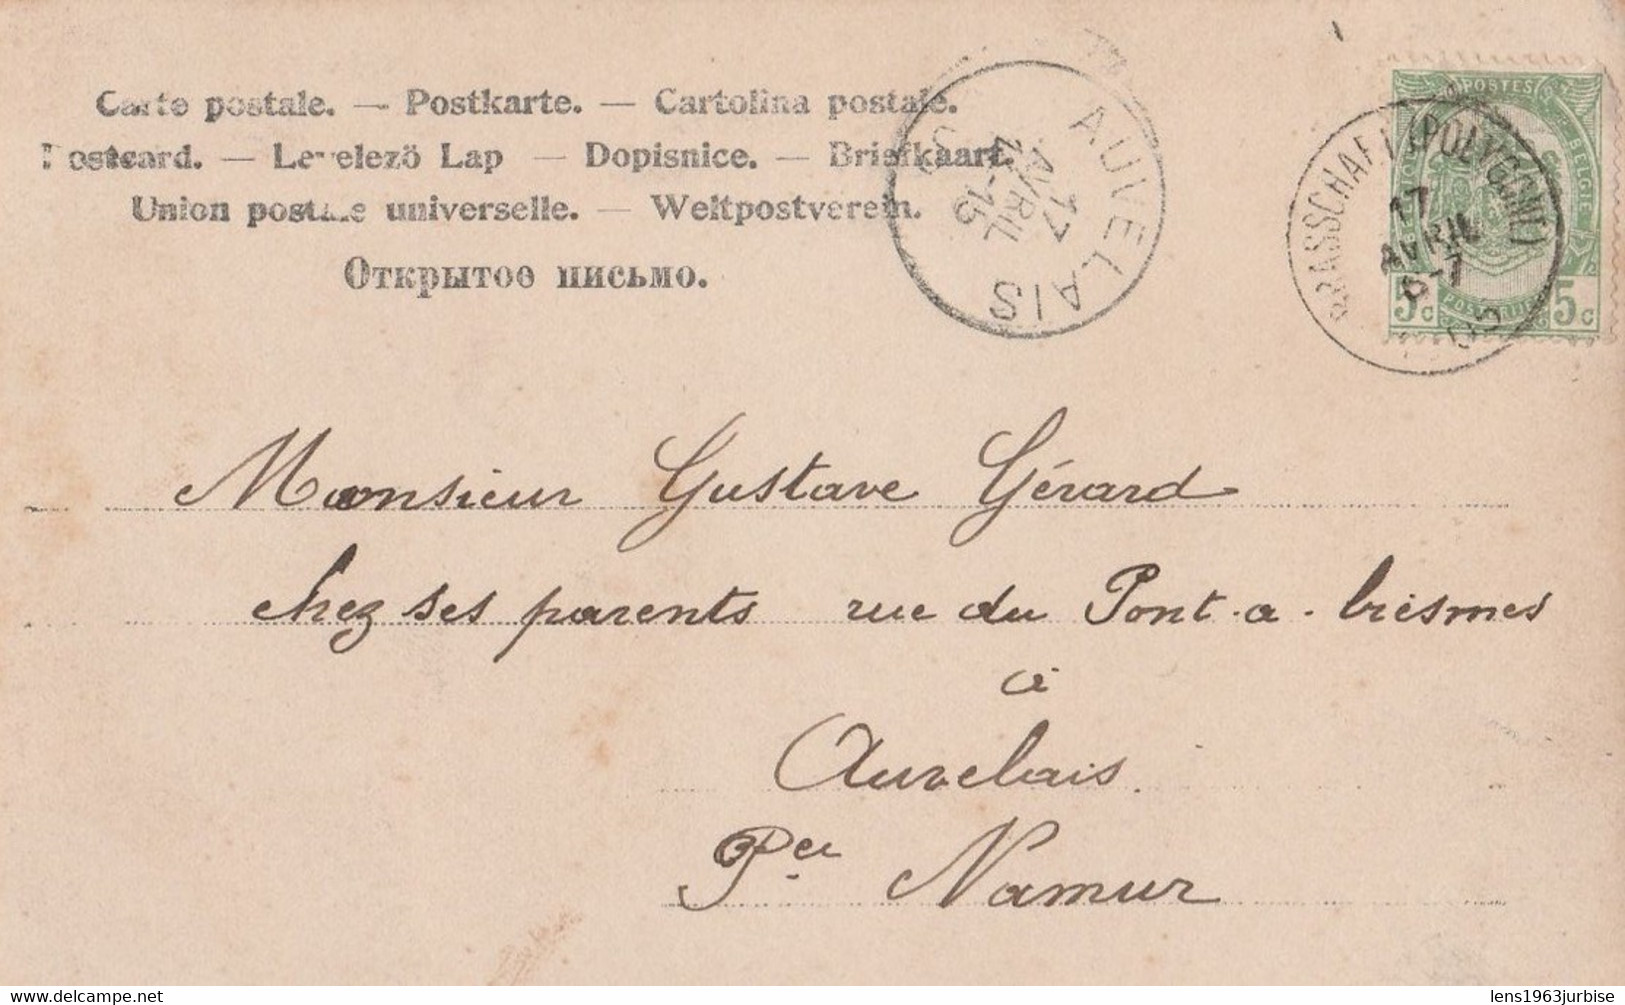 Carte postale. — Postkarte. — Cartolina postale.
Postcard. — Levelező Lap — Dopisnice. — Briefkaart.
Union postale universelle. — Weltpostverein.
Открытое письмо.
AUVELAIS
17
AVRIL
BRASSCHAET (POLYGONE)
17
AVRIL
6-7
05
POSTES
BELGIE
5c 5c
Monsieur Gustave Gérard
chez ses parents rue du Pont-a-biesmes
à
Auvelais
Pce Namur
https://www.delcampe.net
lens1963jurbise